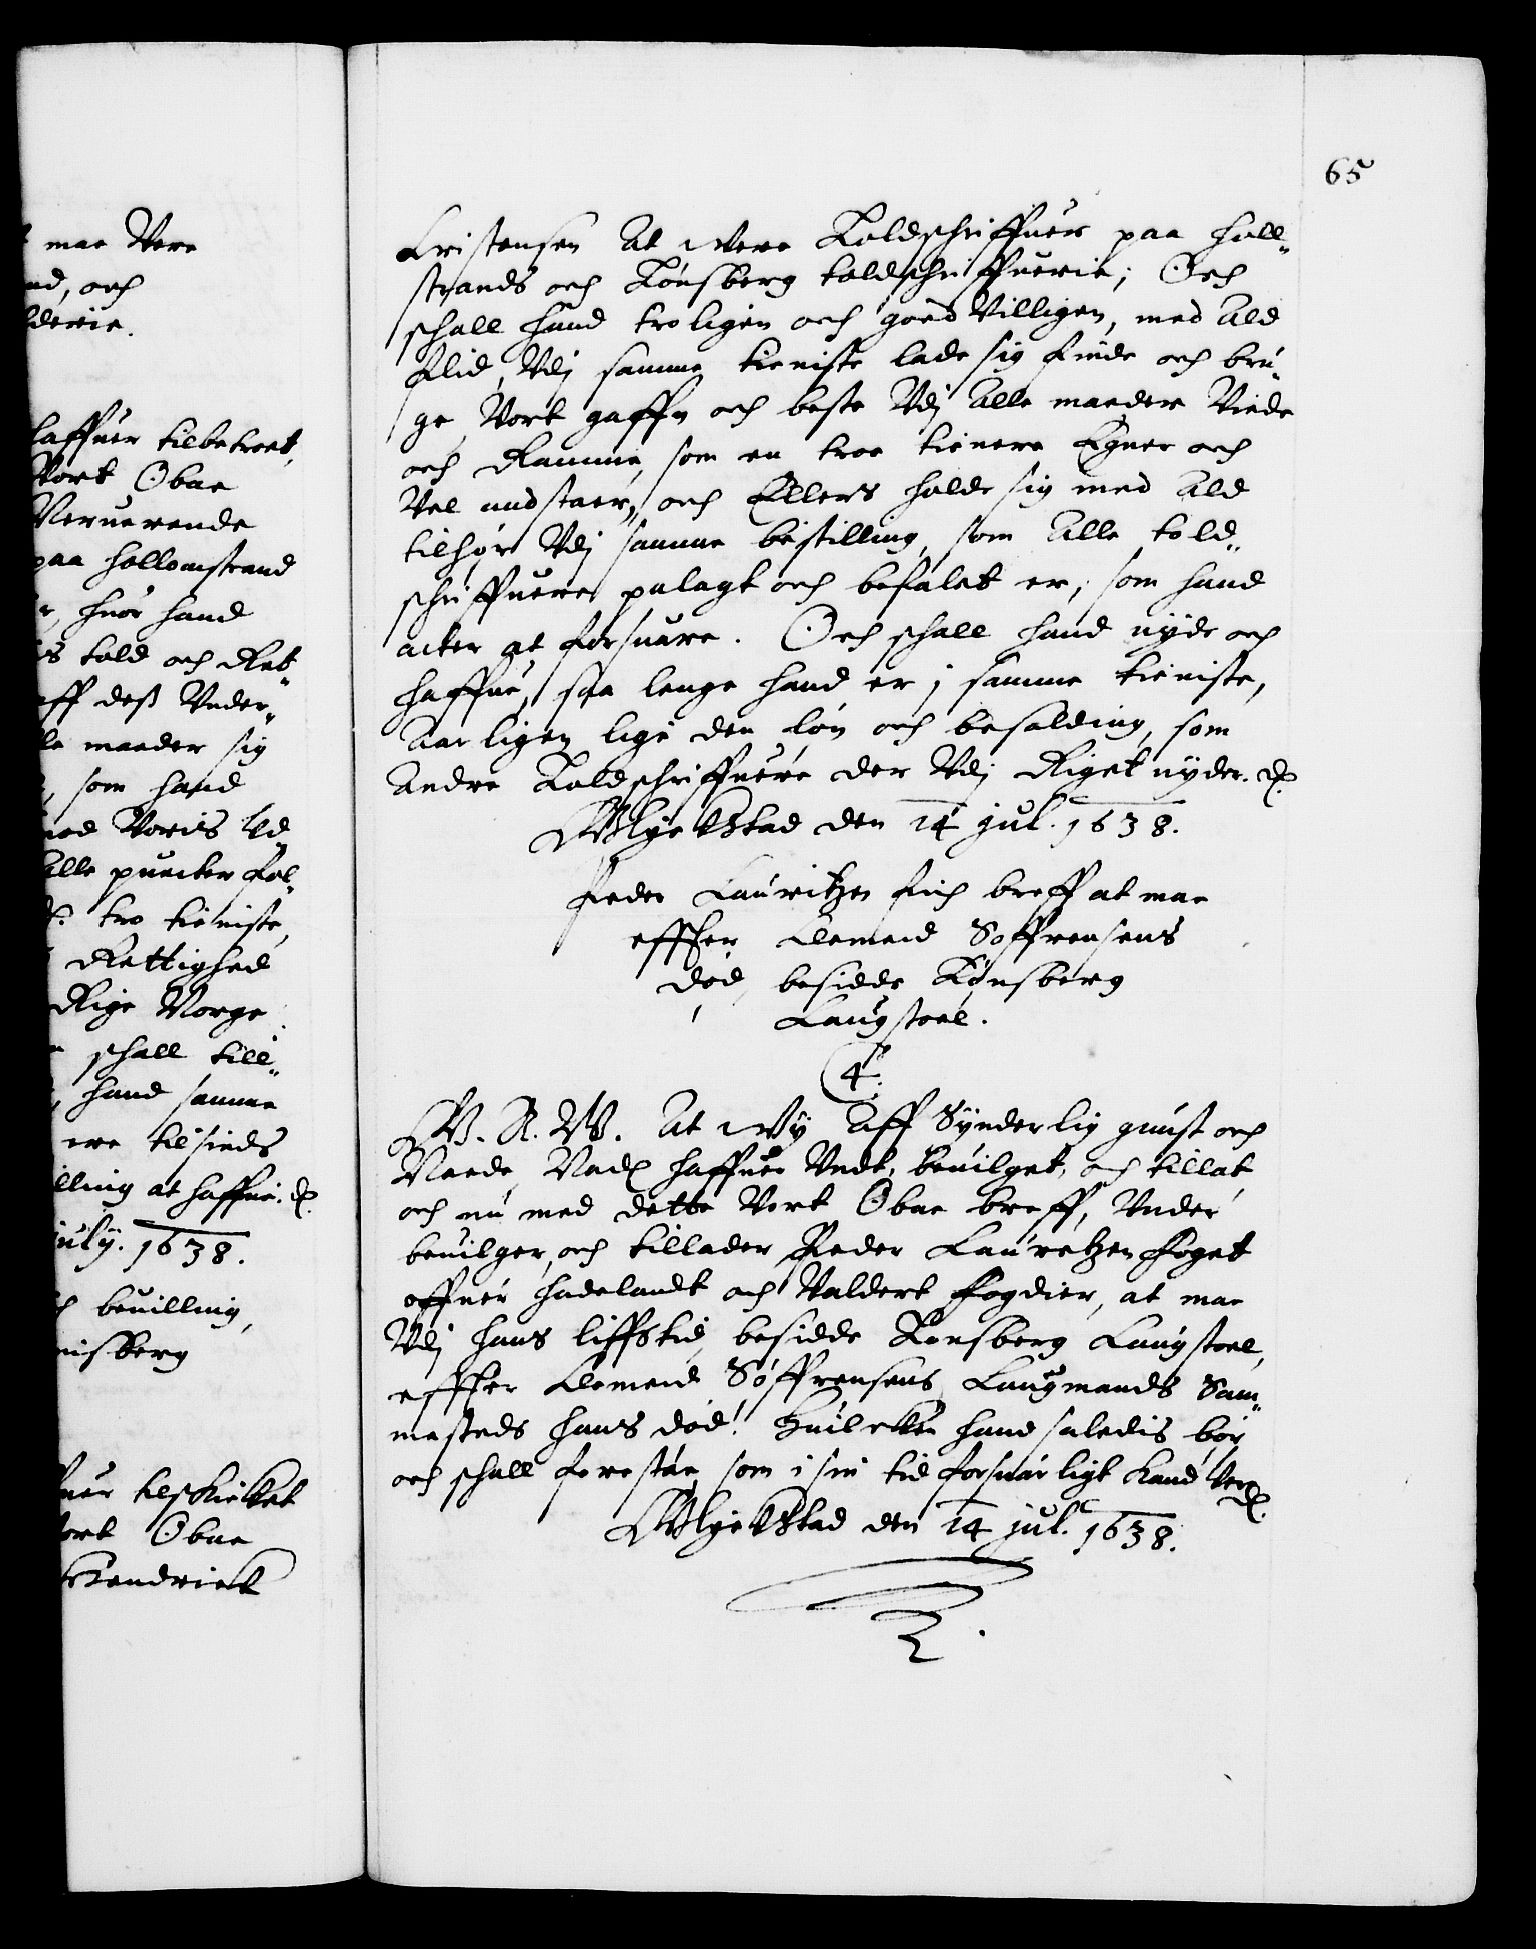 mae Vere
nd, och
lderie.
haffuer tilbetroet,
Vort Obne
Neruerende
paa Hollomstrand
r, huor hand
is told och Ret„
aff dess Vnder„
le maader sig
, som hand
mod Voris Ud
Alle puncter fol„
tro tieniste,
Rettighed
Rige Norge
schall till„
, hand samme
ere tilsinds
illing at haffue. &c.
july. 1638.
h beuilling,
nisberg
fuer tilskicket
Vort Obne
Hendrick
65
Cristensen At were Toldschriffuer paa Holl„
strands och Tønsberg toldschriffuerie; Och
schall hand troligen och goed Villigen, med Ald
flid, Vdj samme tieniste lade sig finde och bru„
ge, Vort gaffn och beste Vdj Alle maader Viede
och Ramme, som en troe tienere Egner och
Vel andstaer, och Ellers holde sig med Ald
tilhør Vdj samme bestilling, som Alle told„
schriffuere palagt och befalet er, som hand
acter at forsuare. Och schall hand nyde och
haffue, saa lenge hand er i samme tieniste,
Aarligen lige den løn och besolding, som
Andre Toldschriffuere der Vdj Riget nyder. &c.
Glyckstad den 14 jul. 1638.
Peder Lauritzen fich breff at mae
effter Clemend Søffrensens
død, besidde Tønsberg
Laugstoel.
4.
C. 4. G. A. V. At Wy Aff Synderlig gunst och
Naade, Naad haffuer Vndt, beuilget, och tillat
och nu med dette Vort Obne breff, Vnder
beuilger, och tillader Peder Lauretzen foget
offuer Hadelandt och Valders Fogdier, at mae
Vdj hans liffstid, besidde Tonsberg Laugstoel,
effter Clemend Søffrensens, Laugmands Sam„
mesteds hans død. Huilcken hand saledis bør
och schall forestae, som i sin tid forsuarligt kand Vere
&c.
Glyckstad den 14 jul. 1638.